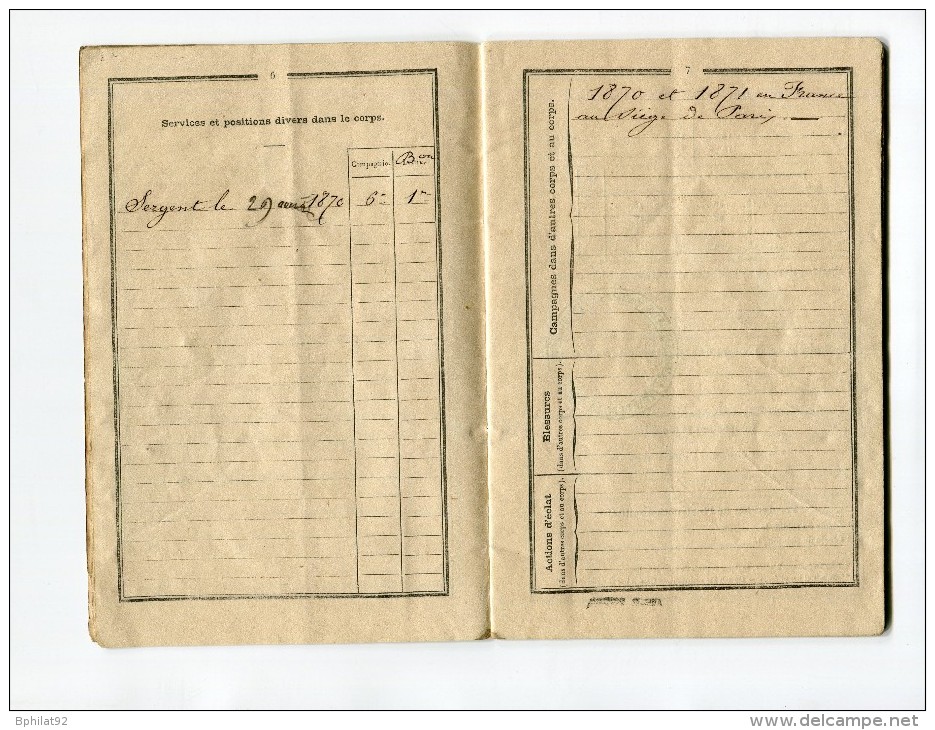 6
Services et positions divers dans le corps.
Compagnie. Bon
Sergent le 29 1870 6e 1er
7
Campagnes dans d'autres corps et au corps.
1870 et 1871 en France
au Siège de Paris
Blessures
(dans d'autres corps et au corps).
Actions d'éclat
(dans d'autres corps et au corps).
Bphilat92
www.delcampe.net